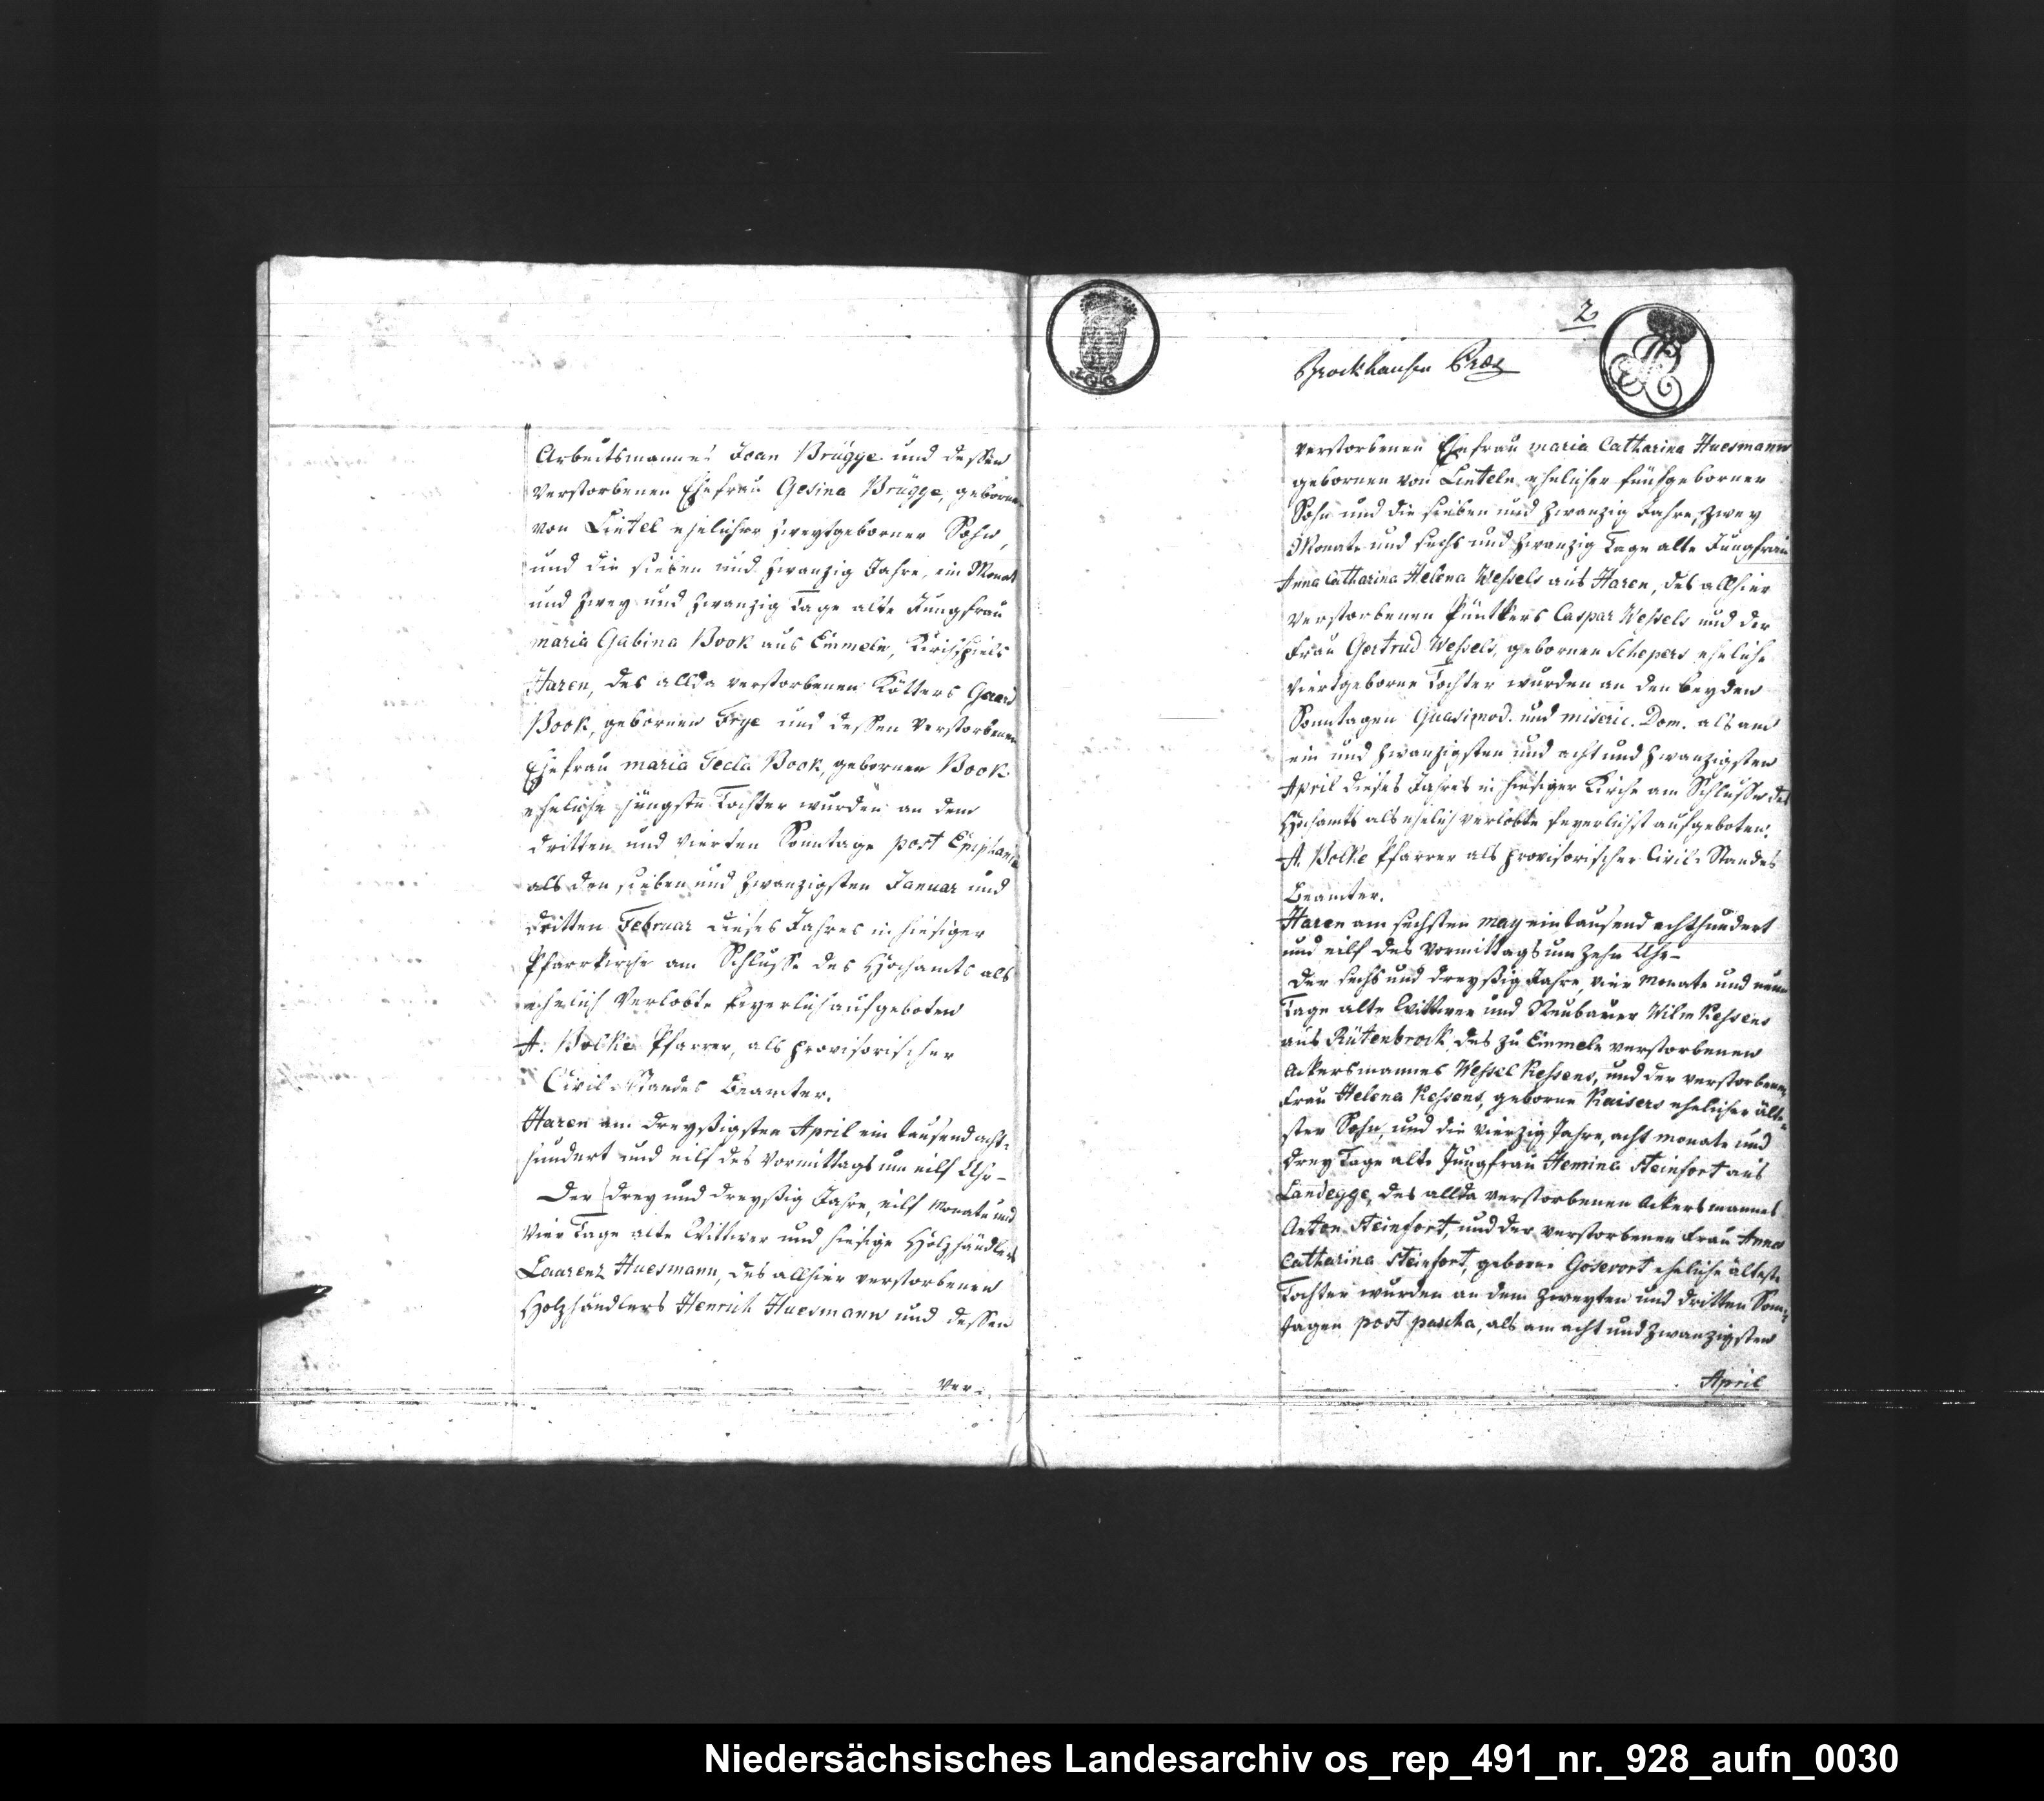 Arbeitsmannes Joan Brügge und dessen
verstorbenen Ehefrau Gesina Brügge, geborne
von Lintel ehelicher zweytgeborner Sohn,
und die sieben und zwanzig Jahre, ein Monat
und zwey und zwanzig Tage alte Jungfrau
maria Gabina Book aus Emmeln, Kirchspiels
Haren, des allda verstorbenen Kötters Gerard
Book, gebornen Frye und dessen verstorbenen
Ehefrau maria Tecla Book, gebornen Book
eheliche jüngste Tochter wurden an dem
dritten und vierten Sonntage post Epiphania
als den sieben und zwanzigsten Januar und
dritten Februar dieses Jahres in hiesiger
Pfarrkirche am Schlusse des Hochamts als
ehelich Verlobte feyerlich aufgeboten
A. Bolke Pfarrer, als provisorischer
Civil-Standes Beamter.
Haren am dreyßigsten April ein tausend acht-
hundert und eilf des Vormittags um eilf Uhr-
Der drey und dreyßig Jahre, eilf Monate und
vier Tage alte Wittwer und hiesige Holzhändler
Laurenz Huesmann, des allhier verstorbenen
Holzhändlers Henrich Huesmann und dessen
ver-
2
Brockhausen Præs
verstorbenen Ehefrau maria Catharina Huesmann
gebornen von Linteln ehelicher fünfgeborner
Sohn und die sieben und zwanzig Jahre, zwey
Monate und sechs und zwanzig Tage alte Jungfrau
Anna Catharina Helena Wessels aus Haren, des allhier
verstorbenen Püntkers Caspar Wessels und der
Frau Gertrud Wessels, gebornen Schepers eheliche
viertgeborne Tochter wurden an den beyden
Sonntagen Quasimod. und miseric. Dom. als am
ein und zwanzigsten und acht und zwanzigsten
April dieses Jahres in hiesiger Kirche am Schlusse des
Hochamts als ehelich verlobte feyerlichst aufgeboten.
A. Bolke Pfarrer als provisorischer Civil-Standes
Beamter.
Haren am sechsten may ein tausend achthundert
und eilf des Vormittags um zehn Uhr-
Der sechs und dreyßig Jahre, vier Monate und neun
Tage alte Wittwer und Neubauer Wilm Kessens
aus Rütenbrock des zu Emmeln verstorbenen
Ackersmannes Wessel Kessens, und der verstorbenen
Frau Helena Kessens, geborne Kaisers ehelicher älte-
ster Sohn, und die vierzig Jahre, acht monate und
drey Tage alte Jungfrau Hemina Steinfort aus
Landegge, des allda verstorbenen Ackersmannes
Anton Steinfort, und der verstorbenen Frau Anna
Catharina Steinfort, geborne Gosevort eheliche älteste
Tochter wurden an dem zweyten und dritten Sonn-
tagen post pascha, als am acht und zwanzigsten
April
Niedersächsisches Landesarchiv os_rep_491_nr._928_aufn_0030